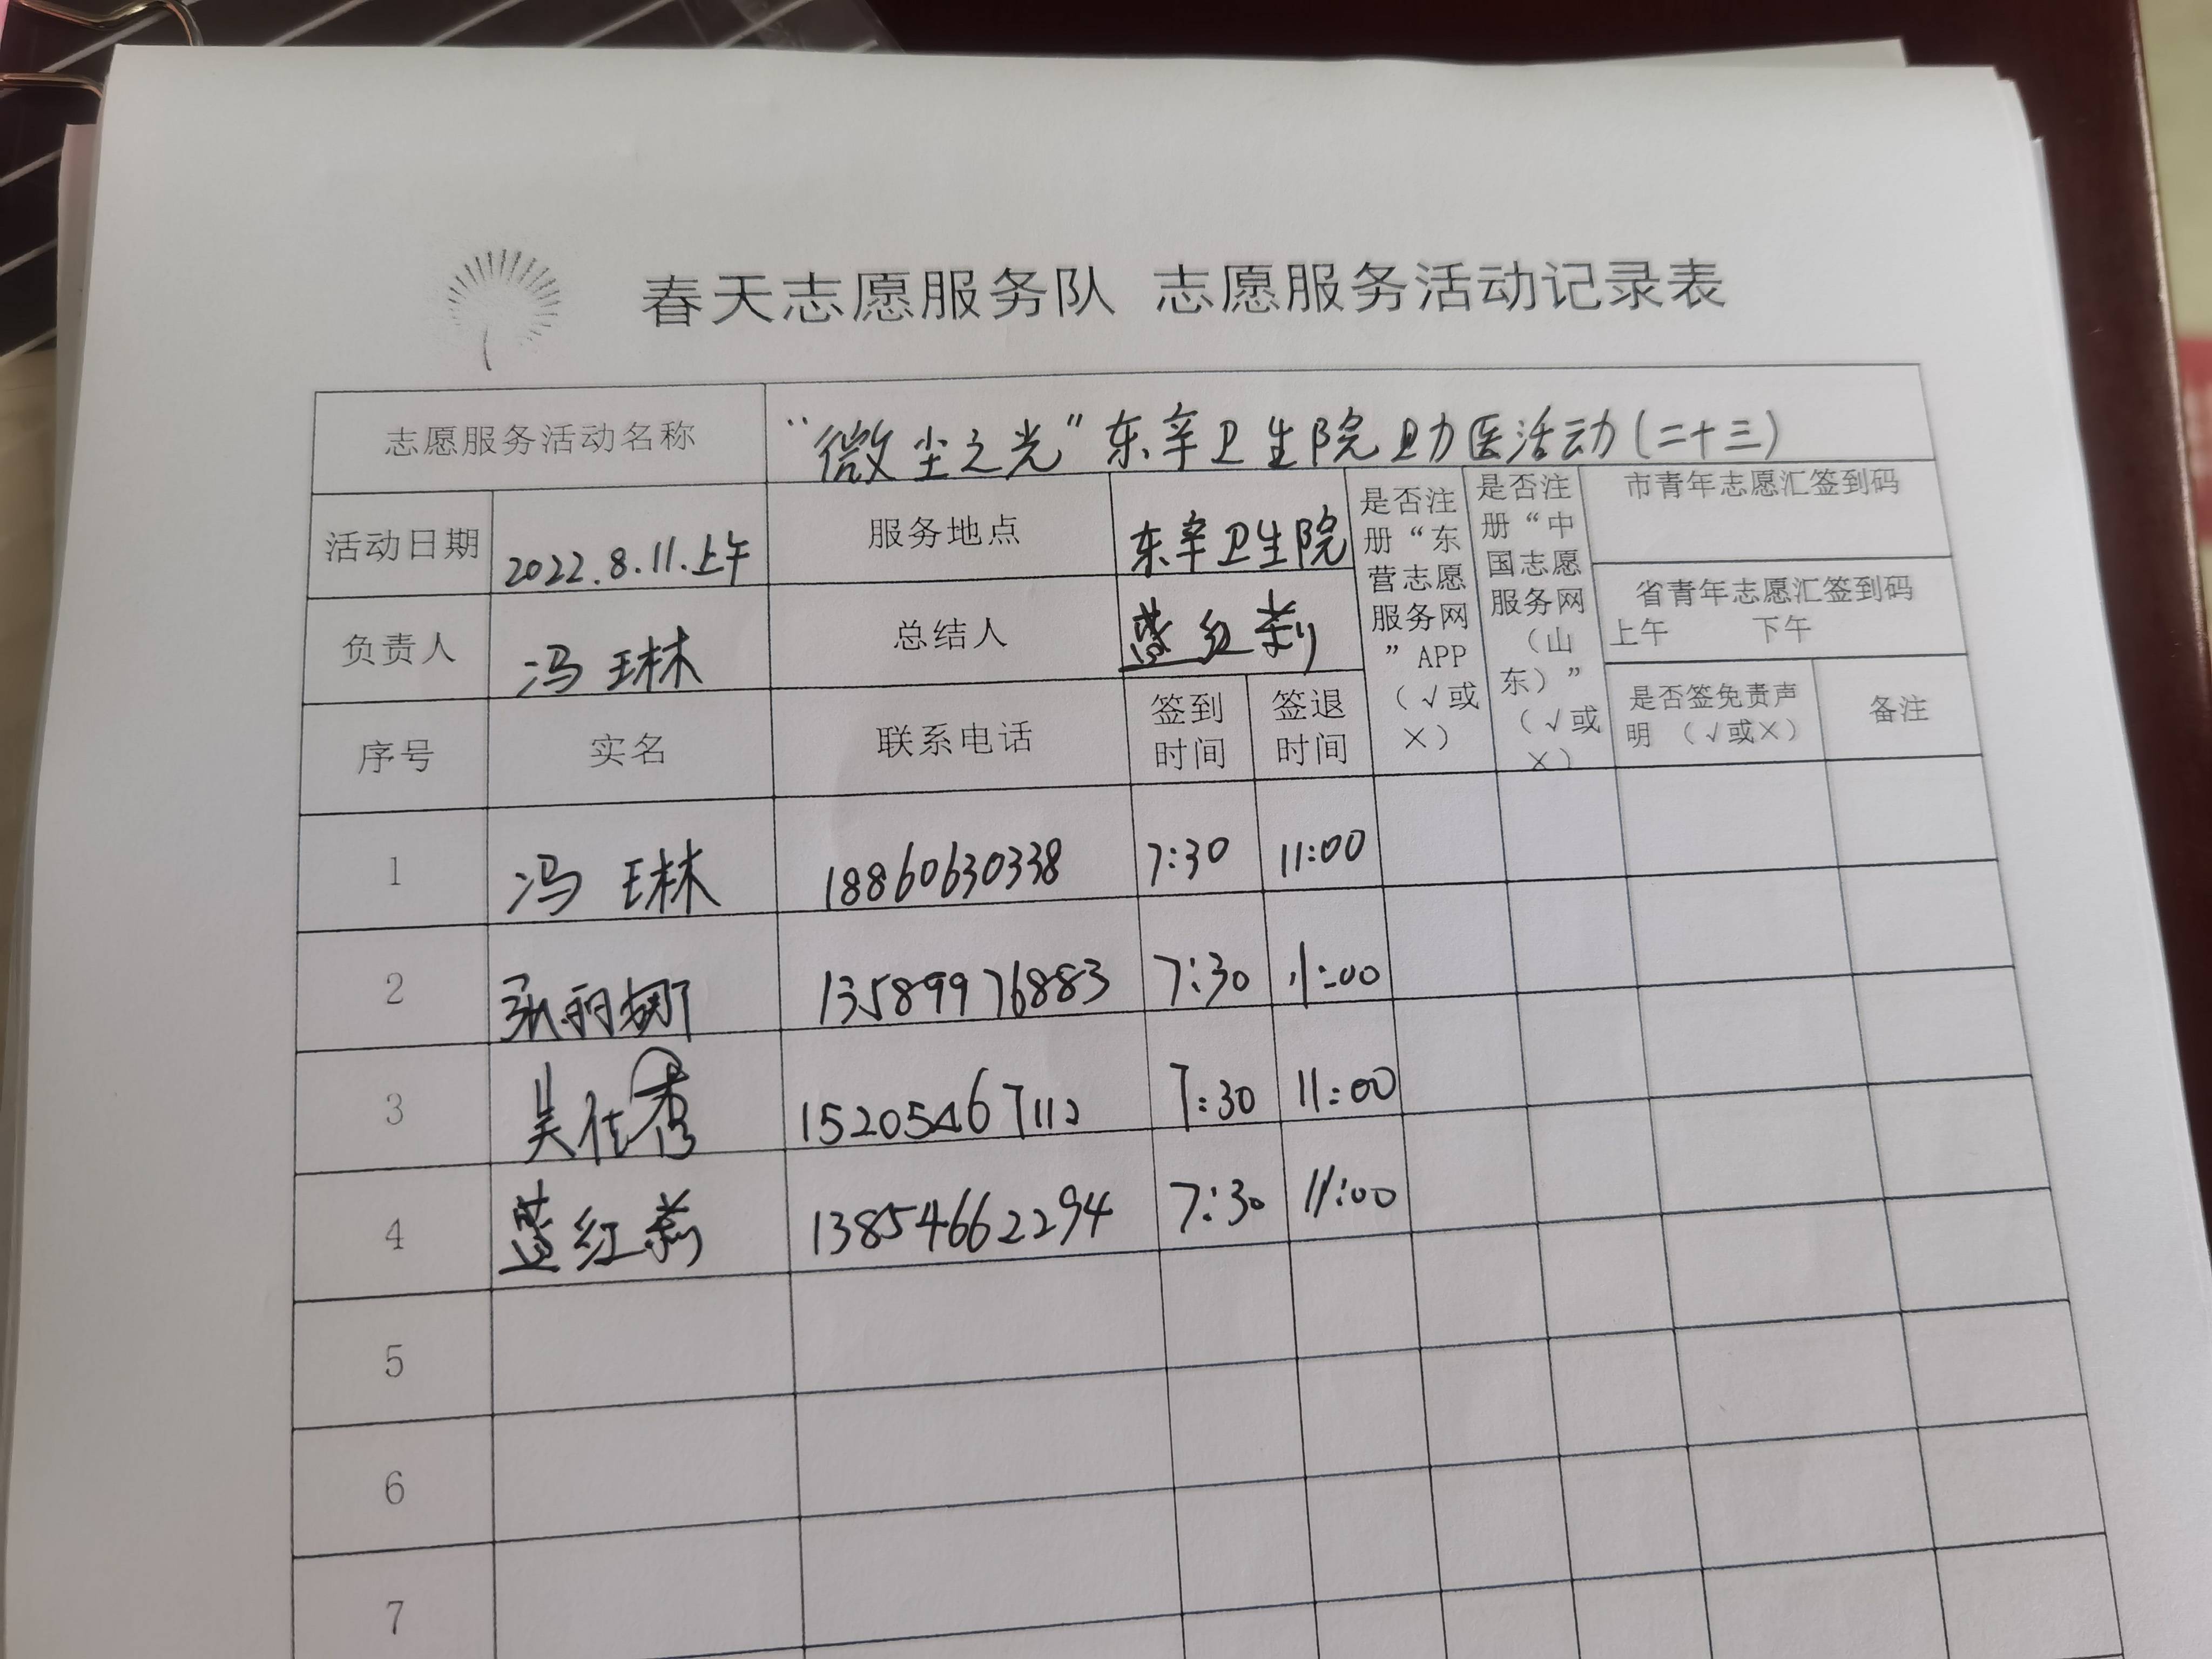 春天志愿服务队 志愿服务活动记录表
志愿服务活动名称 “微尘之光”东辛卫生院助医活动(二十三)
活动日期 2022.8.11.上午 服务地点 东辛卫生院
负责人 冯琳 总结人 蓝红莉
是否注册“东营志愿服务网”APP(√或×)
是否注册“中国志愿服务网(山东)”(√或×)
市青年志愿汇签到码
省青年志愿汇签到码
上午 下午
序号 实名 联系电话 签到时间 签退时间 是否签免责声明 (√或×) 备注
1 冯琳 18860630338 7:30 11:00
2 13589976883 7:30 11:00
3 吴仕秀 15205467112 7:30 11:00
4 蓝红莉 13854662294 7:30 11:00
5
6
7